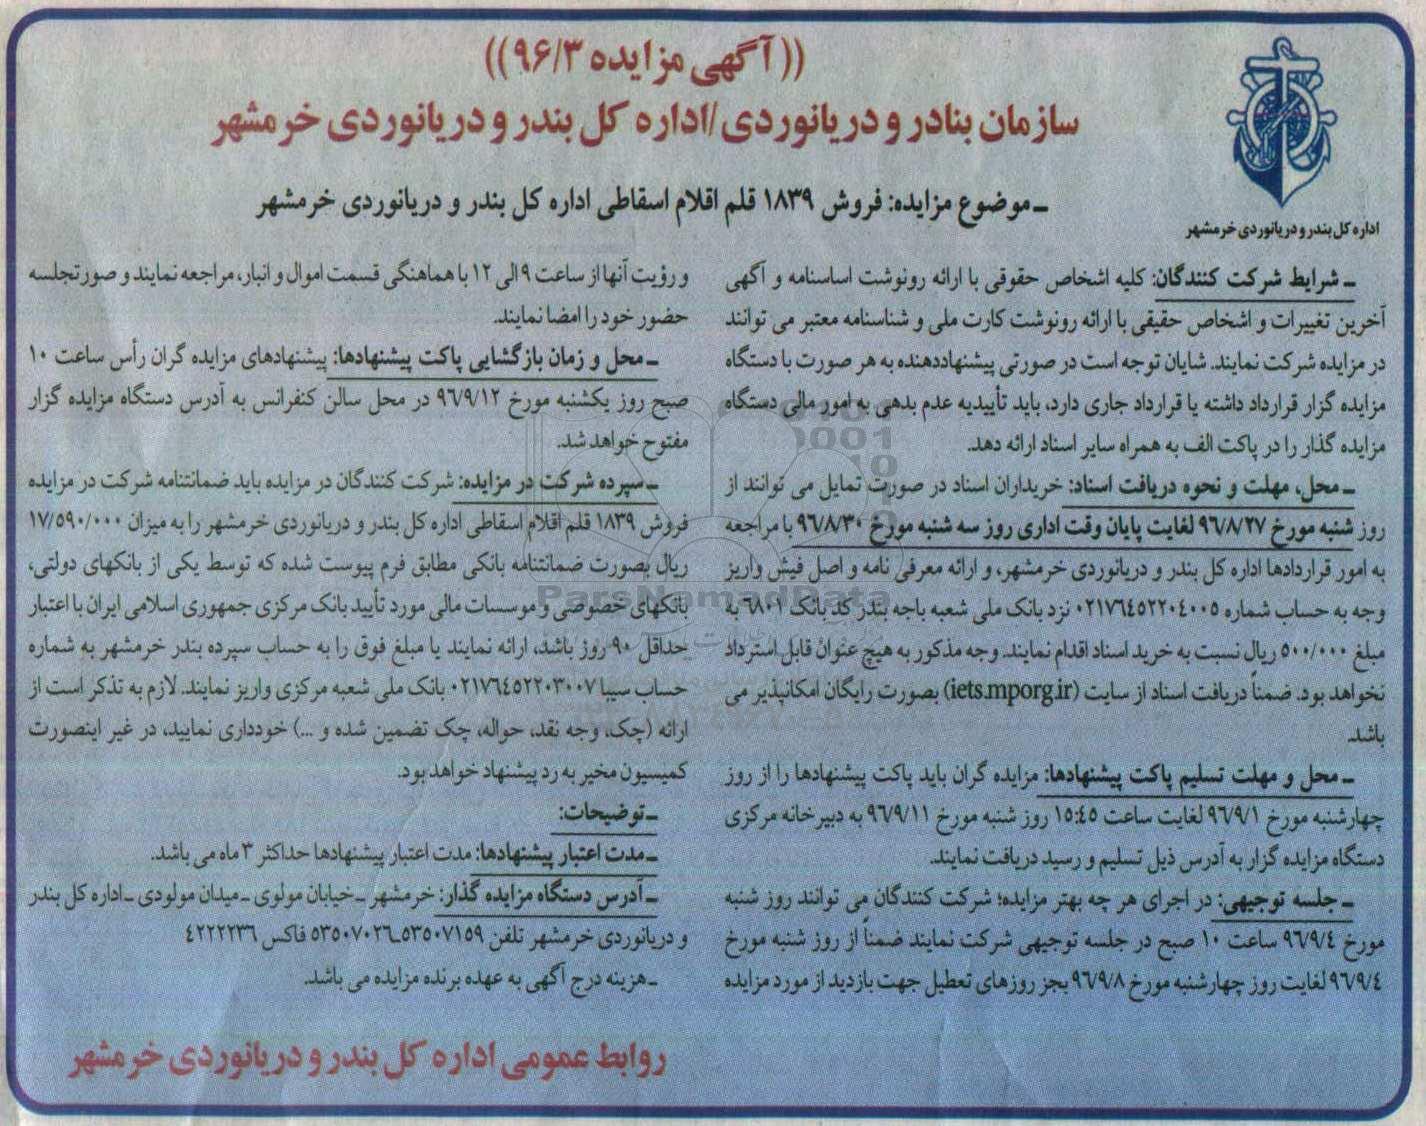 ((آگهی مزایده ۹۶/۳))
سازمان بنادر و دریانوردی/اداره کل بندر و دریانوردی خرمشهر
ـ موضوع مزایده: فروش ۱۸۳۹ قلم اقلام اسقاطی اداره کل بندر و دریانوردی خرمشهر
اداره کل بندر و دریانوردی خرمشهر
ـ شرایط شرکت کنندگان: کلیه اشخاص حقوقی با ارائه رونوشت اساسنامه و آگهی
آخرین تغییرات و اشخاص حقیقی با ارائه رونوشت کارت ملی و شناسنامه معتبر می توانند
در مزایده شرکت نمایند. شایان توجه است در صورتی پیشنهاددهنده به هر صورت با دستگاه
مزایده گزار قرارداد داشته یا قرارداد جاری دارد، باید تأییدیه عدم بدهی به امور مالی دستگاه
مزایده گذار را در پاکت الف به همراه سایر اسناد ارائه دهد.
ـ محل، مهلت و نحوه دریافت اسناد: خریداران اسناد در صورت تمایل می توانند از
روز شنبه مورخ ۹۶/۸/۲۷ لغایت پایان وقت اداری روز سه شنبه مورخ ۹۶/۸/۳۰ با مراجعه
به امور قراردادها اداره کل بندر و دریانوردی خرمشهر، و ارائه معرفی نامه و اصل فیش واریز
وجه به حساب شماره ۰۲۱۷۶۴۵۲۲۰۴۰۰۵ نزد بانک ملی شعبه باجه بندر کد بانک ۶۸۰۱ به
مبلغ ۵۰۰/۰۰۰ ریال نسبت به خرید اسناد اقدام نمایند. وجه مذکور به هیچ عنوان قابل استرداد
نخواهد بود. ضمناً دریافت اسناد از سایت (iets.mporg.ir) بصورت رایگان امکانپذیر می
باشد.
ـ محل و مهلت تسلیم پاکت پیشنهادها: مزایده گران باید پاکت پیشنهادها را از روز
چهارشنبه مورخ ۹۶/۹/۱ لغایت ساعت ۱۵:۴۵ روز شنبه مورخ ۹۶/۹/۱۱ به دبیرخانه مرکزی
دستگاه مزایده گزار به آدرس ذیل تسلیم و رسید دریافت نمایند.
ـ جلسه توجیهی: در اجرای هر چه بهتر مزایده؛ شرکت کنندگان می توانند روز شنبه
مورخ ۹۶/۹/۴ ساعت ۱۰ صبح در جلسه توجیهی شرکت نمایند ضمناً از روز شنبه مورخ
۹۶/۹/۴ لغایت روز چهارشنبه مورخ ۹۶/۹/۸ بجز روزهای تعطیل جهت بازدید از مورد مزایده
و رؤیت آنها از ساعت ۹ الی ۱۲ با هماهنگی قسمت اموال و انبار، مراجعه نمایند و صورتجلسه
حضور خود را امضا نمایند.
ـ محل و زمان بازگشایی پاکت پیشنهادها: پیشنهادهای مزایده گران رأس ساعت ۱۰
صبح روز یکشنبه مورخ ۹۶/۹/۱۲ در محل سالن کنفرانس به آدرس دستگاه مزایده گزار
مفتوح خواهد شد.
ـ سپرده شرکت در مزایده: شرکت کنندگان در مزایده باید ضمانتنامه شرکت در مزایده
فروش ۱۸۳۹ قلم اقلام اسقاطی اداره کل بندر و دریانوردی خرمشهر را به میزان ۱۷/۵۹۰/۰۰۰
ریال بصورت ضمانتنامه بانکی مطابق فرم پیوست شده که توسط یکی از بانکهای دولتی،
بانکهای خصوصی و موسسات مالی مورد تأیید بانک مرکزی جمهوری اسلامی ایران با اعتبار
حداقل ۹۰ روز باشد، ارائه نمایند یا مبلغ فوق را به حساب سپرده بندر خرمشهر به شماره
حساب سیبا ۰۲۱۷۶۴۵۲۲۰۳۰۰۷ بانک ملی شعبه مرکزی واریز نمایند. لازم به تذکر است از
ارائه (چک، وجه نقد، حواله، چک تضمین شده و ...) خودداری نمایید، در غیر اینصورت
کمیسیون مخیر به رد پیشنهاد خواهد بود.
ـ توضیحات:
ـ مدت اعتبار پیشنهادها: مدت اعتبار پیشنهادها حداکثر ۳ ماه می باشد.
ـ آدرس دستگاه مزایده گذار: خرمشهر ـ خیابان مولوی ـ میدان مولودی ـ اداره کل بندر
و دریانوردی خرمشهر تلفن ۵۳۵۰۷۱۵۹ـ۵۳۵۰۷۰۲۶ فاکس ۴۲۲۲۲۳۶
ـ هزینه درج آگهی به عهده برنده مزایده می باشد.
روابط عمومی اداره کل بندر و دریانوردی خرمشهر
ParsNamadData